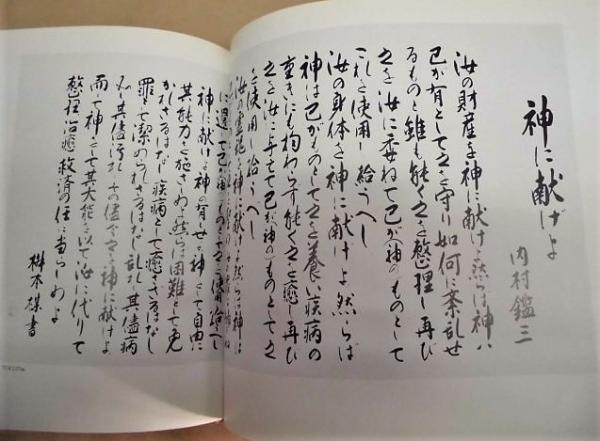 神に献げよ
内村鑑三
汝の財産を神に献げよ然らば神ハ
己が有として之を守り如何に紊乱せ
るものと雖も能く之を整理し再び
之を汝に委ねて己が(神の)ものとして
これを使用し給うべし
汝の身体を神に献げよ然らば
神は己がものとして之を養い疾病の
重きにも拘わらず能く之を癒し再び
之を汝に与えて己が(神の)ものとして之
を使用し給うべし
汝の霊魂を神に献げよ然らば神は
神に献げよ神の有せ神をして自由に
其能力を施さしめよ然らば困難として免
かれざるはなし疾病として癒えざるはなし
罪として潔められざるはなし乱れし其儘病
みし其儘汚れしその儘で之を神に献げよ
而して神をして其大能を以て汝に代りて
整理治癒救済の任に当らしめよ
書